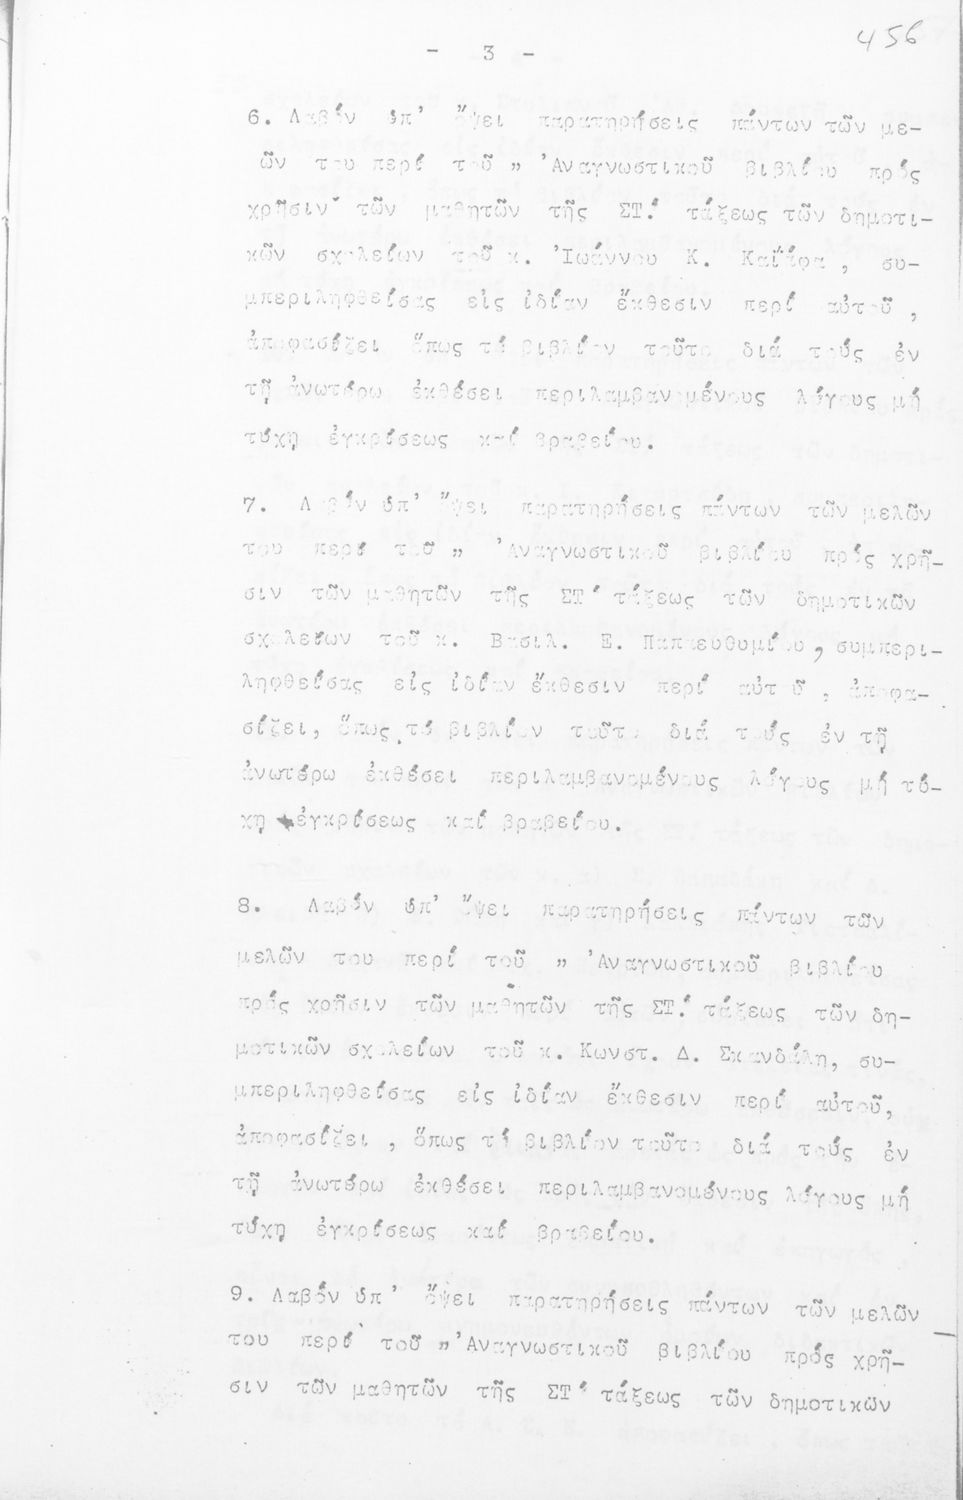 456
- 3 -
6. Λαβόν ὑπ' ὄψει παρατηρήσεις πάντων τῶν με-
ῶν του περί τοῦ „ Ἀναγνωστικοῦ βιβλίου πρός
χρῆσιν τῶν μαθητῶν τῆς ΣΤ΄ τάξεως τῶν δημοτι-
κῶν σχολείων τοῦ κ. Ἰωάννου Κ. Καϊάφα , συ-
μπεριληφθείσας εἰς ἰδίαν ἔκθεσιν περί αὐτοῦ ,
ἀποφασίζει ὅπως τό βιβλίον τοῦτο διά τούς ἐν
τῇ ἀνωτέρω ἐκθέσει περιλαμβανομένους λόγους μή
τύχῃ ἐγκρίσεως καί βραβείου.
7. Λαβόν ὑπ' ὄψει παρατηρήσεις πάντων τῶν μελῶν
του περί τοῦ „ Ἀναγνωστικοῦ βιβλίου πρός χρῆ-
σιν τῶν μαθητῶν τῆς ΣΤ΄ τάξεως τῶν δημοτικῶν
σχολείων τοῦ κ. Βασιλ. Ε. Παπαευθυμίου, συμπερι-
ληφθείσας εἰς ἰδίαν ἔκθεσιν περί αὐτοῦ , ἀποφα-
σίζει, ὅπως τό βιβλίον τοῦτο διά τούς ἐν τῇ
ἀνωτέρω ἐκθέσει περιλαμβανομένους λόγους μή τύ-
χῃ ἐγκρίσεως καί βραβείου.
8. Λαβόν ὑπ' ὄψει παρατηρήσεις πάντων τῶν
μελῶν του περί τοῦ „ Ἀναγνωστικοῦ βιβλίου
πρός χρῆσιν τῶν μαθητῶν τῆς ΣΤ΄ τάξεως τῶν δη-
μοτικῶν σχολείων τοῦ κ. Κωνστ. Δ. Σκανδάλη, συ-
μπεριληφθείσας εἰς ἰδίαν ἔκθεσιν περί αὐτοῦ,
ἀποφασίζει , ὅπως τό βιβλίον τοῦτο διά τούς ἐν
τῇ ἀνωτέρω ἐκθέσει περιλαμβανομένους λόγους μή
τύχῃ ἐγκρίσεως καί βραβείου.
9. Λαβόν ὑπ' ὄψει παρατηρήσεις πάντων τῶν μελῶν
του περί τοῦ „ Ἀναγνωστικοῦ βιβλίου πρός χρῆ-
σιν τῶν μαθητῶν τῆς ΣΤ΄ τάξεως τῶν δημοτικῶν